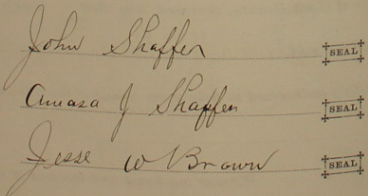 John Shaffer SEAL
Amasa J Shaffer SEAL
Jesse W Brown SEAL